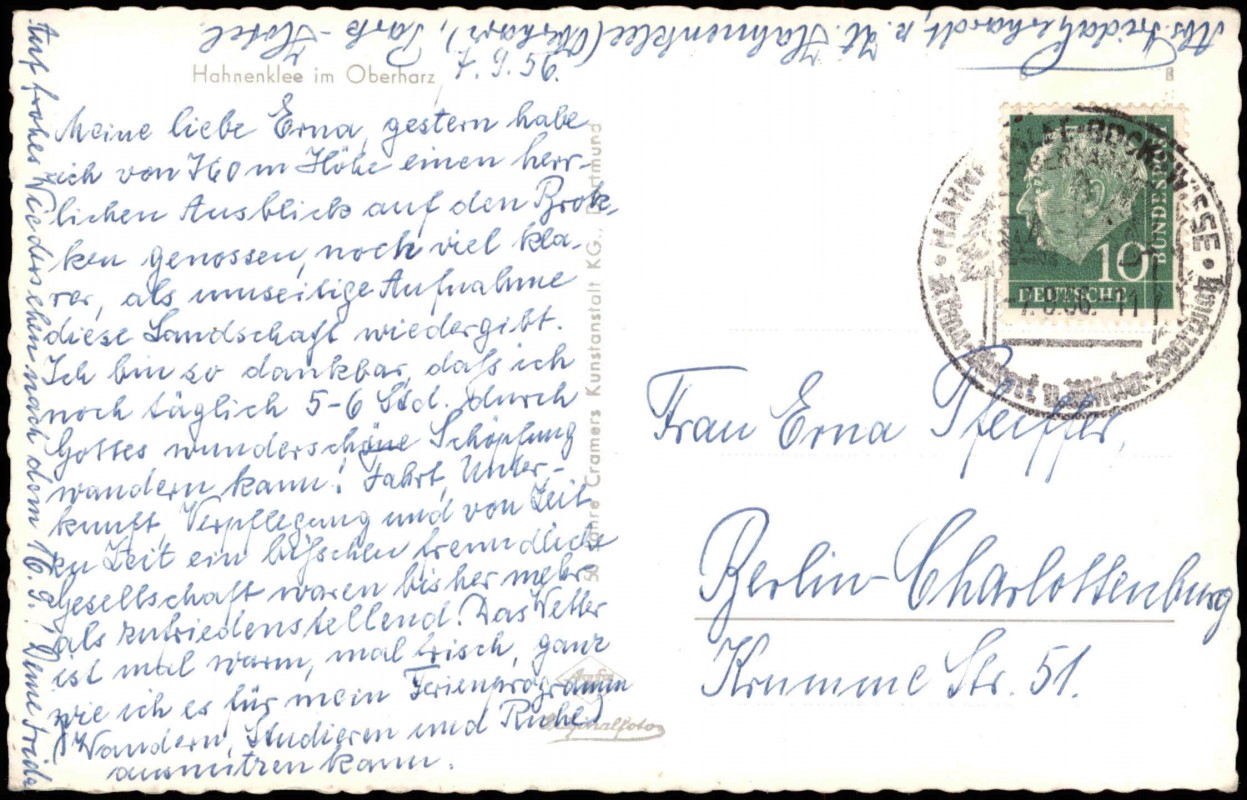 Abs. Frida Gerhardt, z. Zt. Hahnenklee (Oberharz), Park-Hotel.
Hahnenklee im Oberharz
7.9.56.
Meine liebe Erna, gestern habe
ich von 760 m Höhe einen herr-
lichen Ausblick auf den Brok-
ken genossen, noch viel kla-
rer, als umseitige Aufnahme
diese Landschaft wiedergibt.
Ich bin so dankbar, daß ich
noch täglich 5-6 Std. durch
Gottes wunderschöne Schöpfung
wandern kann! Fahrt, Unter-
kunft, Verpflegung und von Zeit
zu Zeit ein bißchen freundliche
Gesellschaft waren bisher mehr
als zufriedenstellend. Das Wetter
ist mal warm, mal frisch, ganz
wie ich es für mein Ferienprogramm
(Wandern, Studieren und Ruhe)
ausnützen kann.
Auf frohes Wiedersehen nach dem 16.9.! Deine Frida
50 Jahre Cramers Kunstanstalt KG., Dortmund
Originalfoto
HAHNENKLEE-BOCKSWIESE
7.9.56.-11
10
DEUTSCHE
BUNDESPOST
Frau Erna Pfeiffer,
Berlin-Charlottenburg
Krumme Str. 51.